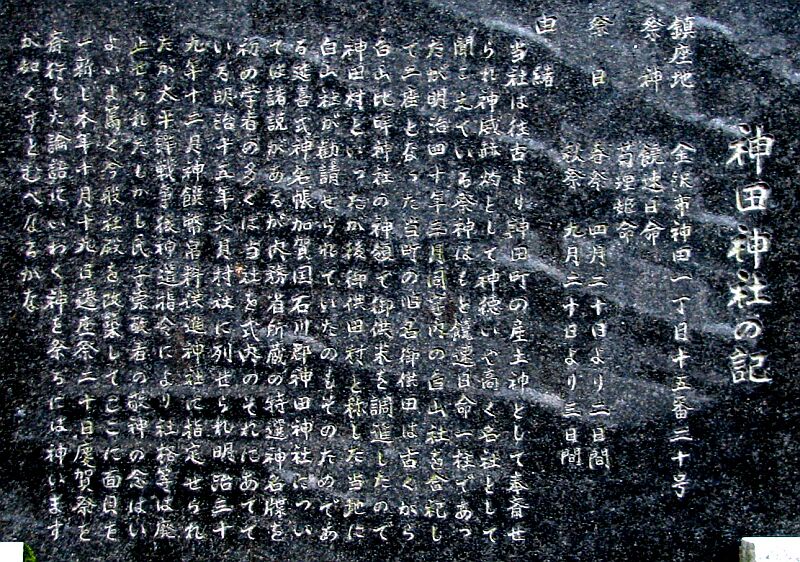 神田神社の記
鎮座地 金沢市神田一丁目十五番二十号
祭神 饒速日命
菊理姫命
祭日 春祭 四月二十日より二日間
秋祭 九月二十日より三日間
由緒
当社は往古より神田町の産土神として奉斎せ
られ神威赫灼として神徳いや高く名社として
聞こえている祭神はもと饒速日命一柱であっ
たが明治四十年三月同町内の白山社を合祀し
て二座となった当町の旧名御供田は古くから
白山比咩神社の神領で御供米を調進したので
神田村といったが後御供田村と称した当地に
白山社が勧請せられていたのもそのためであ
る延喜式神名帳加賀国石川郡神田神社につい
ては諸説があるが内務省所蔵の特選神名牒を
初め学者の多くは当社を式内のそれにあてて
いる明治十五年六月村社に列せられ明治三十
九年十二月神饌幣帛料供進神社に指定せられ
たが太平洋戦争後神道指令により社格等は廃
止せられたしかし氏子崇敬者の敬神の念はい
よいよ高く今般社殿を改築してここに面目を
一新し本年十月十九日遷座祭二十日慶賀祭を
斎行した論語にいわく神を祭るには神います
が如くすとむべなるかな